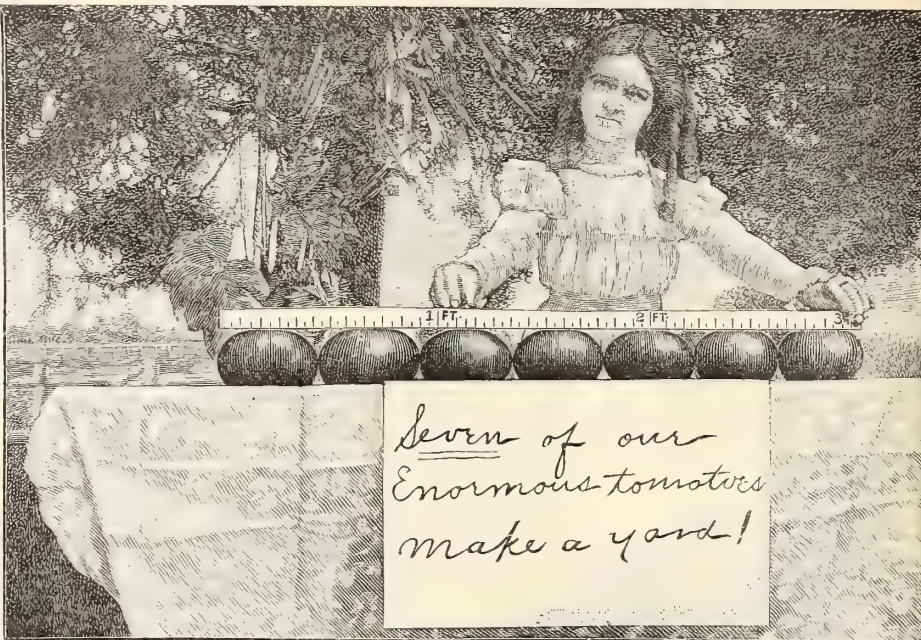 1 FT.
2 FT.
3
Seven of our
Enormous tomatoes
make a yard!